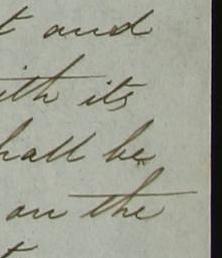 t and
ith its
hall be
on the